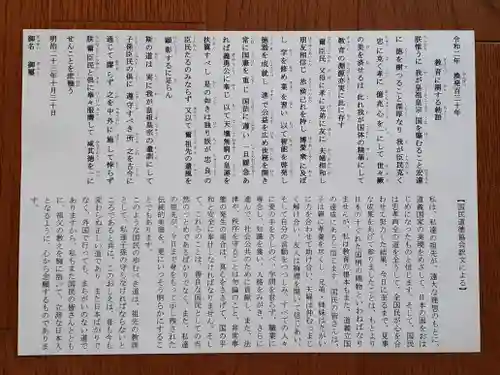 令和二年 煥発百三十年
教育に関する勅語
朕惟うに 我が皇祖皇宗 国を肇むること宏遠
に 徳を樹つること深厚なり 我が臣民克く
忠に克く孝に 億兆心を一にして 世々厥
の美を済せるは 此れ我が国体の精華にして
教育の淵源亦実に此に存す
爾臣民 父母に孝に 兄弟に友に 夫婦相和し
朋友相信じ 恭倹己れを持し 博愛衆に及ぼ
し 学を修め業を習い 以て智能を啓発し
徳器を成就し 進で公益を広め世務を開き
常に国憲を重じ 国法に遵い 一旦緩急あ
れば義勇公に奉じ 以て天壌無窮の皇運を
扶翼すべし 是の如きは独り朕が忠良の
臣民たるのみならず 又以て爾祖先の遺風を
顕彰するに足らん
斯の道は 実に我が皇祖皇宗の遺訓にして
子孫臣民の倶に遵守すべき所 之を古今に
通じて謬らず 之を中外に施して悖らず
朕爾臣民と倶に拳々服膺して 咸其徳を一に
せんことを庶幾う
明治二十三年十月三十日
御名 御璽
【国民道徳協会訳文による】
私は、私達の祖先が、遠大な理想のもとに、
道義国家の実現をめざして、日本の国をおは
じめになったものと信じます。そして、国民
は忠孝両全の道を全うして、全国民が心を合
わせて努力した結果、今日に至るまで、見事
な成果をあげて参りましたことは、もとより
日本のすぐれた国柄の賜物といわねばなり
ませんが、私は教育の根本もまた、道義立国
の達成にあると信じます。国民の皆さんは、
子は親に孝養を尽くし、兄弟、姉妹はたがい
に力を合わせて助け合い、夫婦は仲むつまじ
く解け合い、友人は胸襟を開いて信じあい、
そして自分の言動をつつしみ、すべての人々
に愛の手をさしのべ、学問を怠らず、職業に
専念し、知識を養い、人格をみがき、さらに
進んで、社会公共のために貢献し、また、法
律や、秩序を守ることは勿論のこと、非常事
態の発生の場合は、真心をささげて、国の平
和と安全に奉仕しなければなりません。そし
て、これらのことは、善良な国民としての当
然のつとめであるばかりでなく、また、私達
の祖先が、今日まで身をもって示し残された
伝統的美風を、更にいっそう明らかにするこ
とでもあります。
このような国民の歩むべき道は、祖先の教訓
として、私達子孫の守らなければならないと
ころであると共に、このおしえは、昔も今も
変わらぬ正しい道であり、また日本ばかりで
なく、外国で行っても、まちがいのない道で
ありますから、私もまた国民の皆さんととも
に、祖父の教えを胸に抱いて、立派な日本人
となるように、心から念願するものでありま
す。